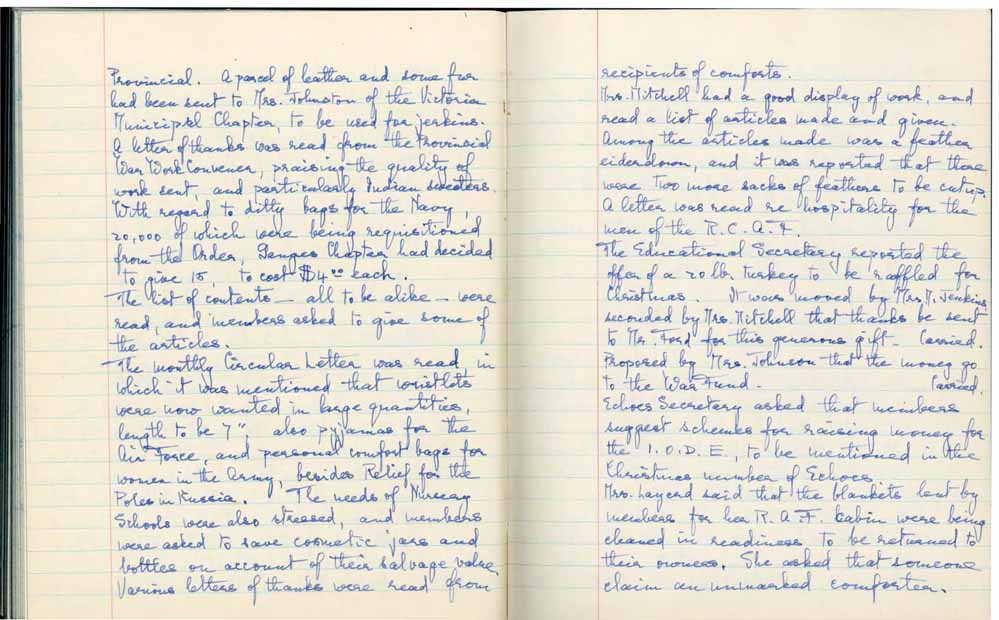 Provincial. A parcel of leather and some fur
had been sent to Mrs. Johnston of the Victoria
Municipal Chapter, to be used for jerkins.
A letter of thanks was read from the Provincial
War Work Convener, praising the quality of
work sent, and particularly Indian sweaters.
With regard to ditty bags for the Navy,
20,000 of which were being requisitioned
from the Order, Ganges Chapter had decided
to give 15, to cost $4.00 each.
The list of contents — all to be alike — were
read, and members asked to give some of
the articles.
The monthly Circular Letter was read, in
which it was mentioned that wristlets
were now wanted in large quantities,
length to be 7"; also pyjamas for the
Air Force, and personal comfort bags for
women in the Army, besides Relief for the
Poles in Russia. The needs of Nursery
Schools were also stressed, and members
were asked to save cosmetic jars and
bottles on account of their salvage value.
Various letters of thanks were read from
recipients of comforts.
Mrs. Mitchell had a good display of work, and
read a list of articles made and given.
Among the articles made was a feather
eiderdown, and it was reported that there
were two more sacks of feathers to be cut up.
A letter was read re hospitality for the
men of the R.C.A.F.
The Educational Secretary reported the
offer of a 20 lb. turkey to be raffled for
Christmas. It was moved by Mrs. M. Jenkins
seconded by Mrs. Mitchell that thanks be sent
to Mr. Ford for this generous gift – Carried.
Proposed by Mrs. Johnson that the money go
to the War Fund. Carried.
Echoes Secretary asked that members
suggest schemes for raising money for
the I.O.D.E., to be mentioned in the
Christmas number of Echoes.
Mrs. Layard said that the blankets lent by
members for her R.A.F. Cabin were being
cleaned in readiness to be returned to
their owners. She asked that someone
claim an unmarked comforter.